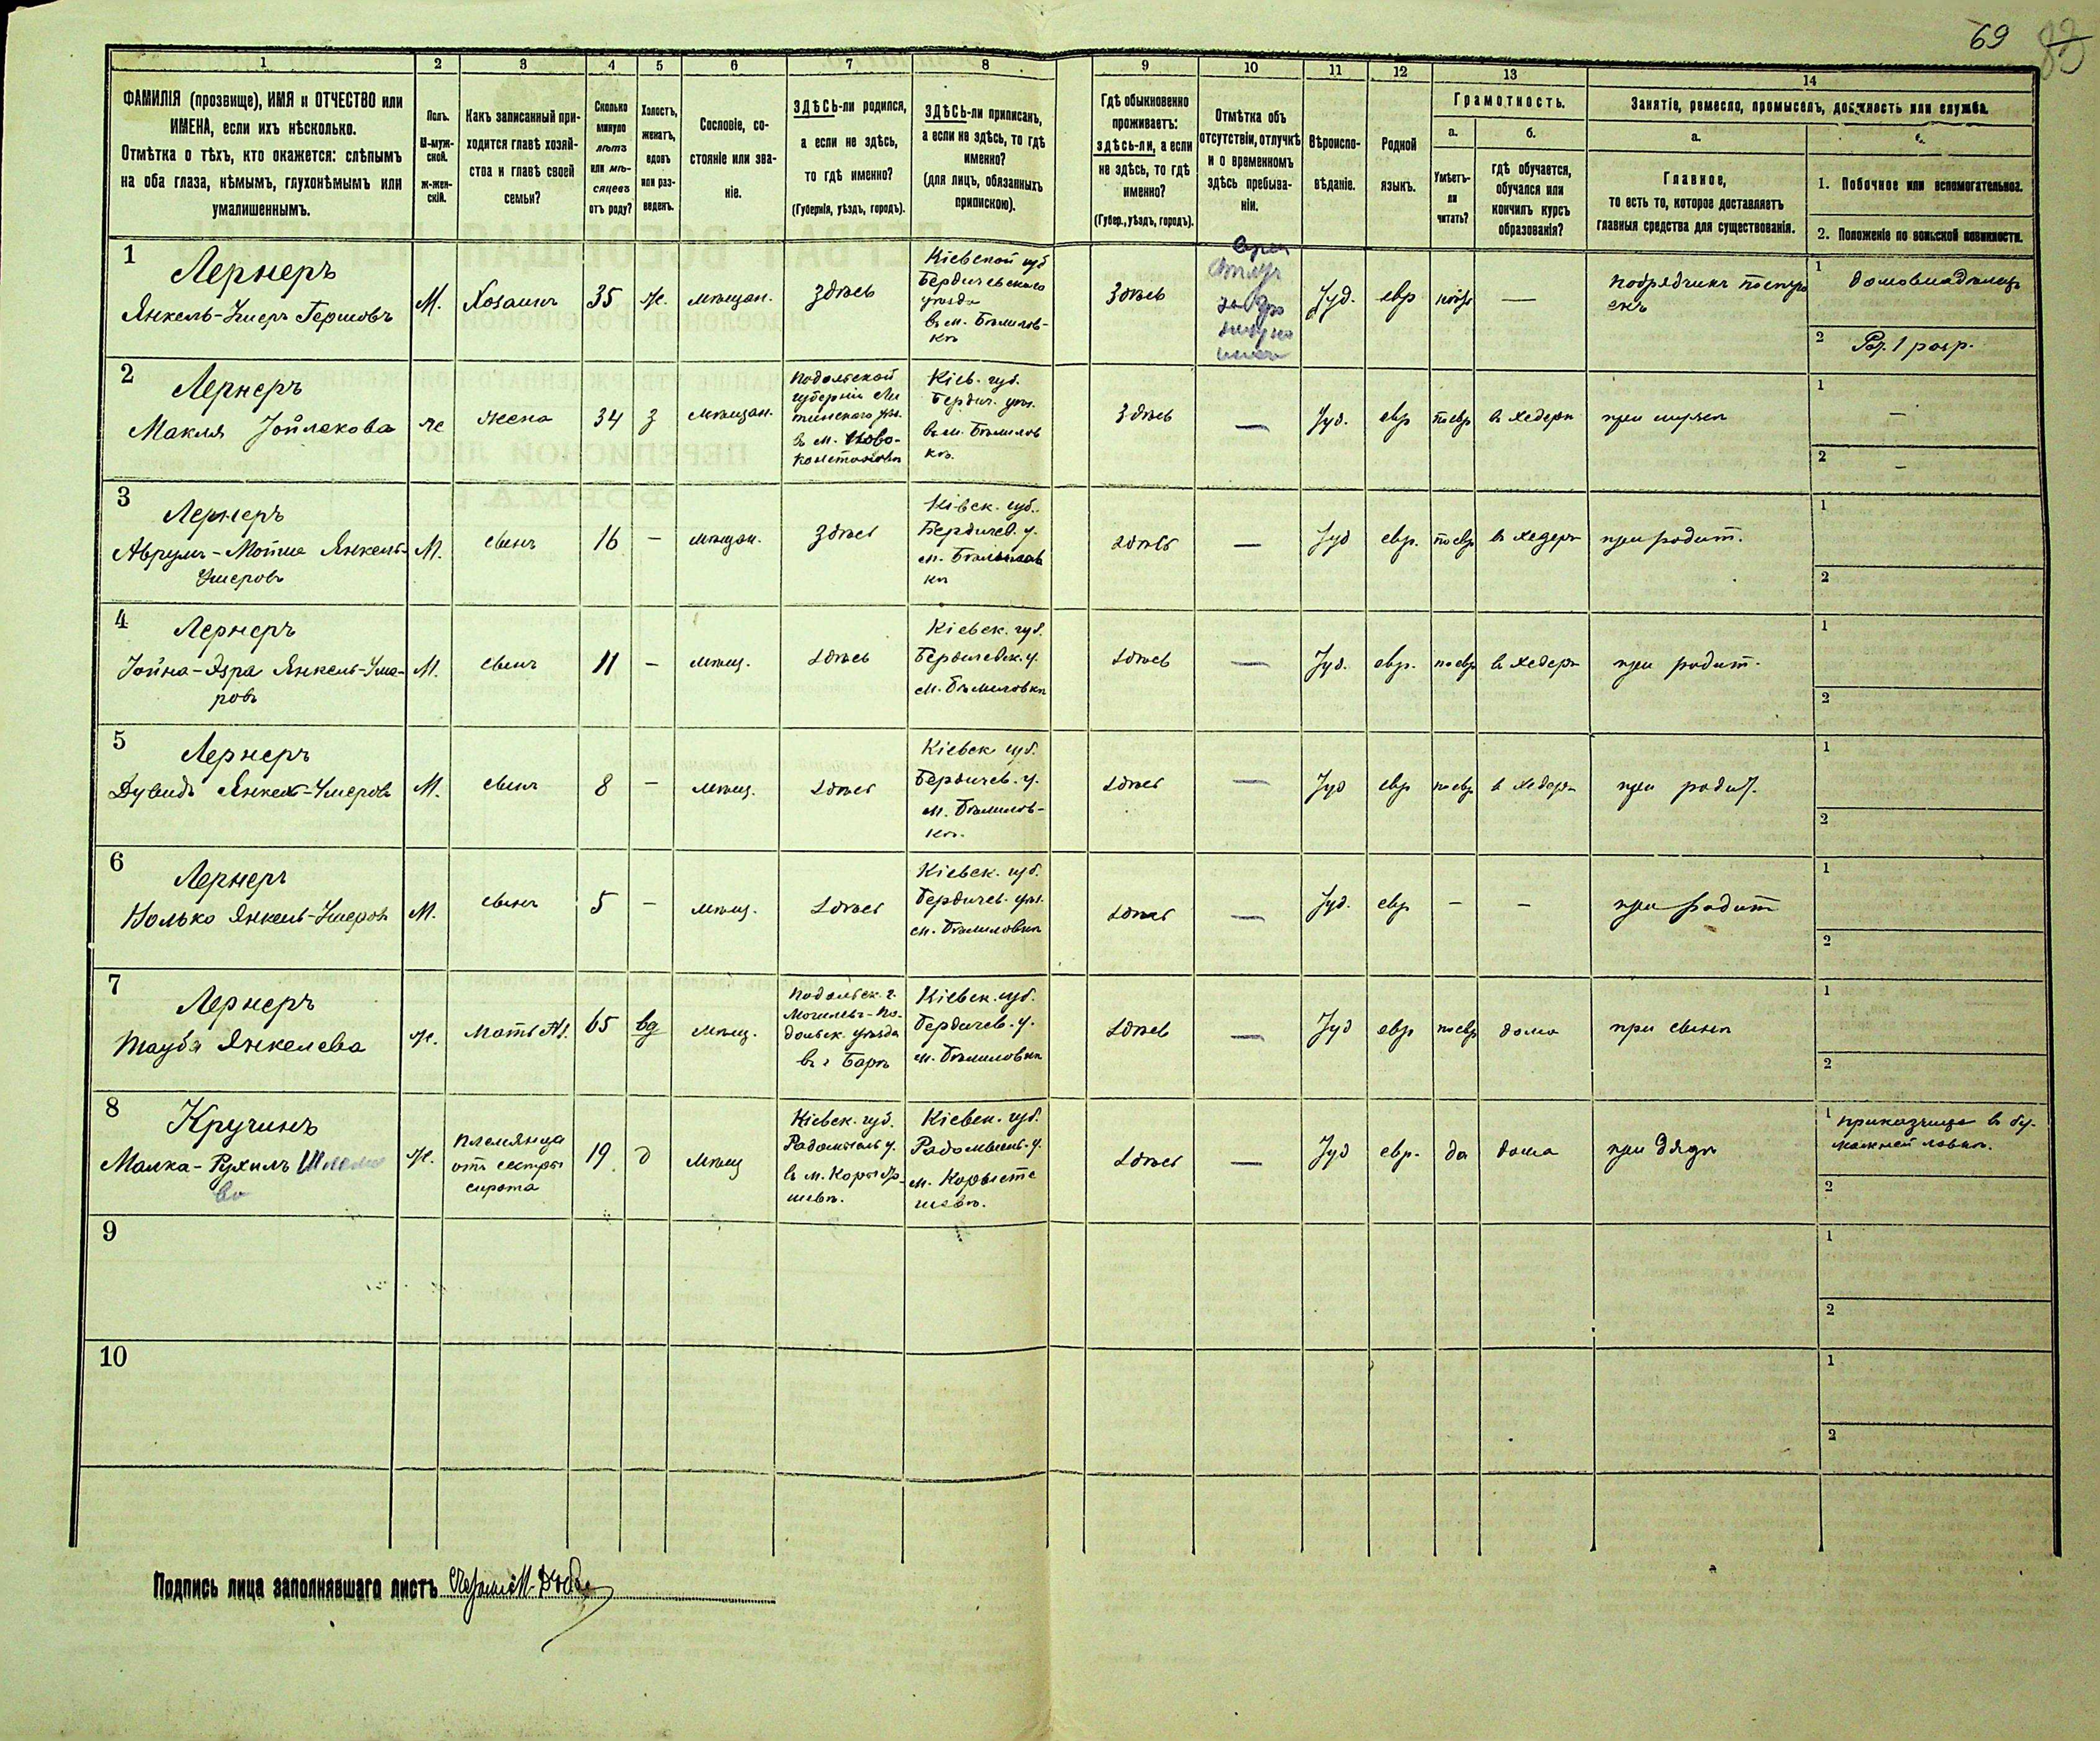 69
83
1 2 3 4 5 6 7 8 9 10 11 12 13 14
ФАМИЛІЯ (прозвище), ИМЯ и ОТЧЕСТВО или
ИМЕНА, если ихъ нѣсколько.
Отмѣтка о тѣхъ, кто окажется: слѣпымъ
на оба глаза, нѣмымъ, глухонѣмымъ или
умалишеннымъ.
Полъ.
М-муж-
ской.
ж-жен-
скій.
Какъ записанный при-
ходится главѣ хозяй-
ства и главѣ своей
семьи?
Сколько
минуло
лѣтъ
или мѣ-
сяцевъ
отъ роду?
Холостъ,
женатъ,
вдовъ
или раз-
веденъ.
Сословіе, со-
стояніе или зва-
ніе.
ЗДѢСЬ-ли родился,
а если не здѣсь,
то гдѣ именно?
(Губернія, уѣздъ, городъ).
ЗДѢСЬ-ли приписанъ,
а если не здѣсь, то гдѣ
именно?
(для лицъ, обязанныхъ
припискою).
Гдѣ обыкновенно
проживаетъ:
здѣсь-ли, а если
не здѣсь, то гдѣ
именно?
(Губер., уѣздъ, городъ).
Отмѣтка объ
отсутствіи, отлучкѣ
и о временномъ
здѣсь пребыва-
ніи.
Вѣроиспо-
вѣданіе.
Родной
языкъ.
Грамотность.
а.
Умѣетъ-
ли
читать?
б.
гдѣ обучается,
обучался или
кончилъ курсъ
образованія?
Занятіе, ремесло, промыселъ, должность или служба.
а.
Главное,
то есть то, которое доставляетъ
главныя средства для существованія.
1. Побочное или вспомогательное.
2. Положеніе по воинской повинности.
1
Лернеръ
Янкель-Умеръ Гершовъ
М.
Хозаинъ
35
ж.
мѣщан.
здѣсь
Кіевской губ
Бердичевскаго
уѣзда
въ м. Бѣлилов-
кѣ
Здѣсь
Іуд.
евр
—
подрядчикъ
1
домовладѣлецъ
2
1 разр.
2
Лернеръ
Макля
же
жена
34
з
мѣщан.
Подольской
губерніи Ли
тинскаго уѣз.
въ м. Ново-
константинов
Кіев. губ.
Бердич. уѣз.
въ м. Бѣлилов
кѣ.
Здѣсь
—
Іуд.
евр
по евр
въ хедерѣ
при мужѣ
1
—
2
—
3
Лернеръ
Аврумъ-Мотие Янкель-
Умеровъ
М.
сынъ
16
—
мѣщан.
здѣсь
Кіевск. губ.
Бердичев. у.
м. Бѣлилов
кѣ
здѣсь
—
Іуд
евр.
по евр
въ хедерѣ
при родит.
1
2
4
Лернеръ
Іойна-Эзра Янкель-Уме-
ровъ
М.
сынъ
11
—
мѣщ.
здѣсь
Кіевск. губ.
Бердичевск. у.
м. Бѣлиловкѣ
здѣсь
—
Іуд.
евр.
по евр
в хедерѣ
при родит.
1
2
5
Лернеръ
Дувидъ Янкел-Умеровъ
М.
сынъ
8
—
мѣщ.
здѣсь
Кіевск губ.
Бердичев. у.
м. Бѣлилов-
кѣ.
здѣсь
—
Іуд
евр
по евр
в хедерѣ
при родит.
1
2
6
Лернеръ
Волько Янкель-Умеров
М.
сынъ
5
—
мѣщ.
здѣсь
Кіевск. губ.
Бердичев. уѣз.
м. Бѣлиловкѣ
здѣсь
—
Іуд.
евр
—
—
при родит
1
2
7
Лернеръ
Тауба Янкелева
ж.
мать
65
вд
мѣщ.
Подольск. г.
Могилевъ-По-
дольск. уѣзда
въ г Барѣ
Кіевск. губ.
Бердичев. у.
м. Бѣлиловкѣ
здѣсь
—
Іуд
евр
по евр
дома
при сынѣ
1
2
8
Кручинъ
Малка-Рухиль Шлемо
ва
ж.
племянца
отъ сестры
сирота
19
д
мѣщ
Кіевск. губ.
Радомысль у.
в м. Корысты-
шевѣ.
Кіевск. губ.
Радомысль. у.
м. Корысте
шевѣ.
здѣсь
—
Іуд
евр.
да
дома
при дядѣ
1
приказчица в бу-
мажной лавкѣ.
2
9
1
2
10
1
2
Подпись лица заполнявшаго листъ